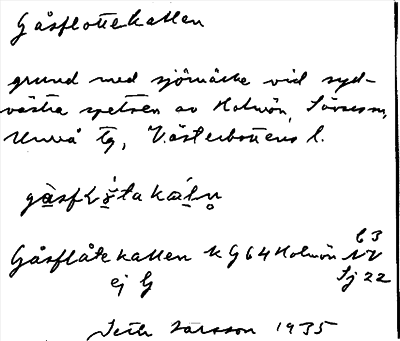 Gåsflottekallen
grund med sjömärke vid syd-
västra spetsen av Holmön, Sävar sn,
Umeå tg, Västerbottens l.
Gåsflåtekallen K G64 Holmön NV
63
ej G
Sj 22
Larsson 1935